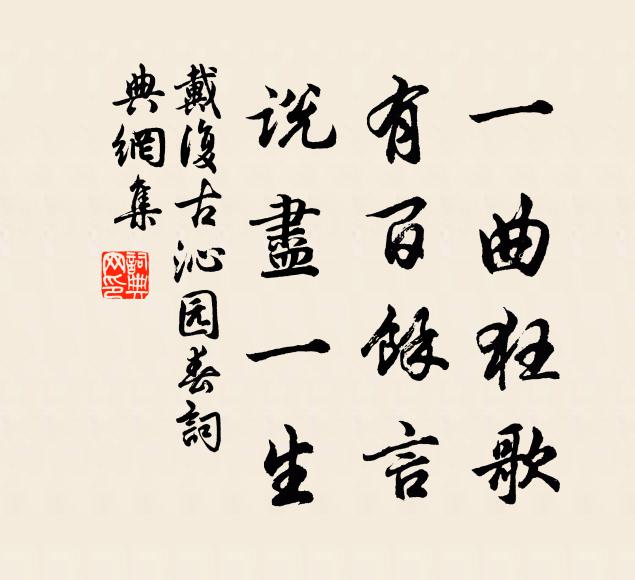 一曲狂歌
有百餘言
說盡一生
戴復古沁园春詞
典網集
詞典网印